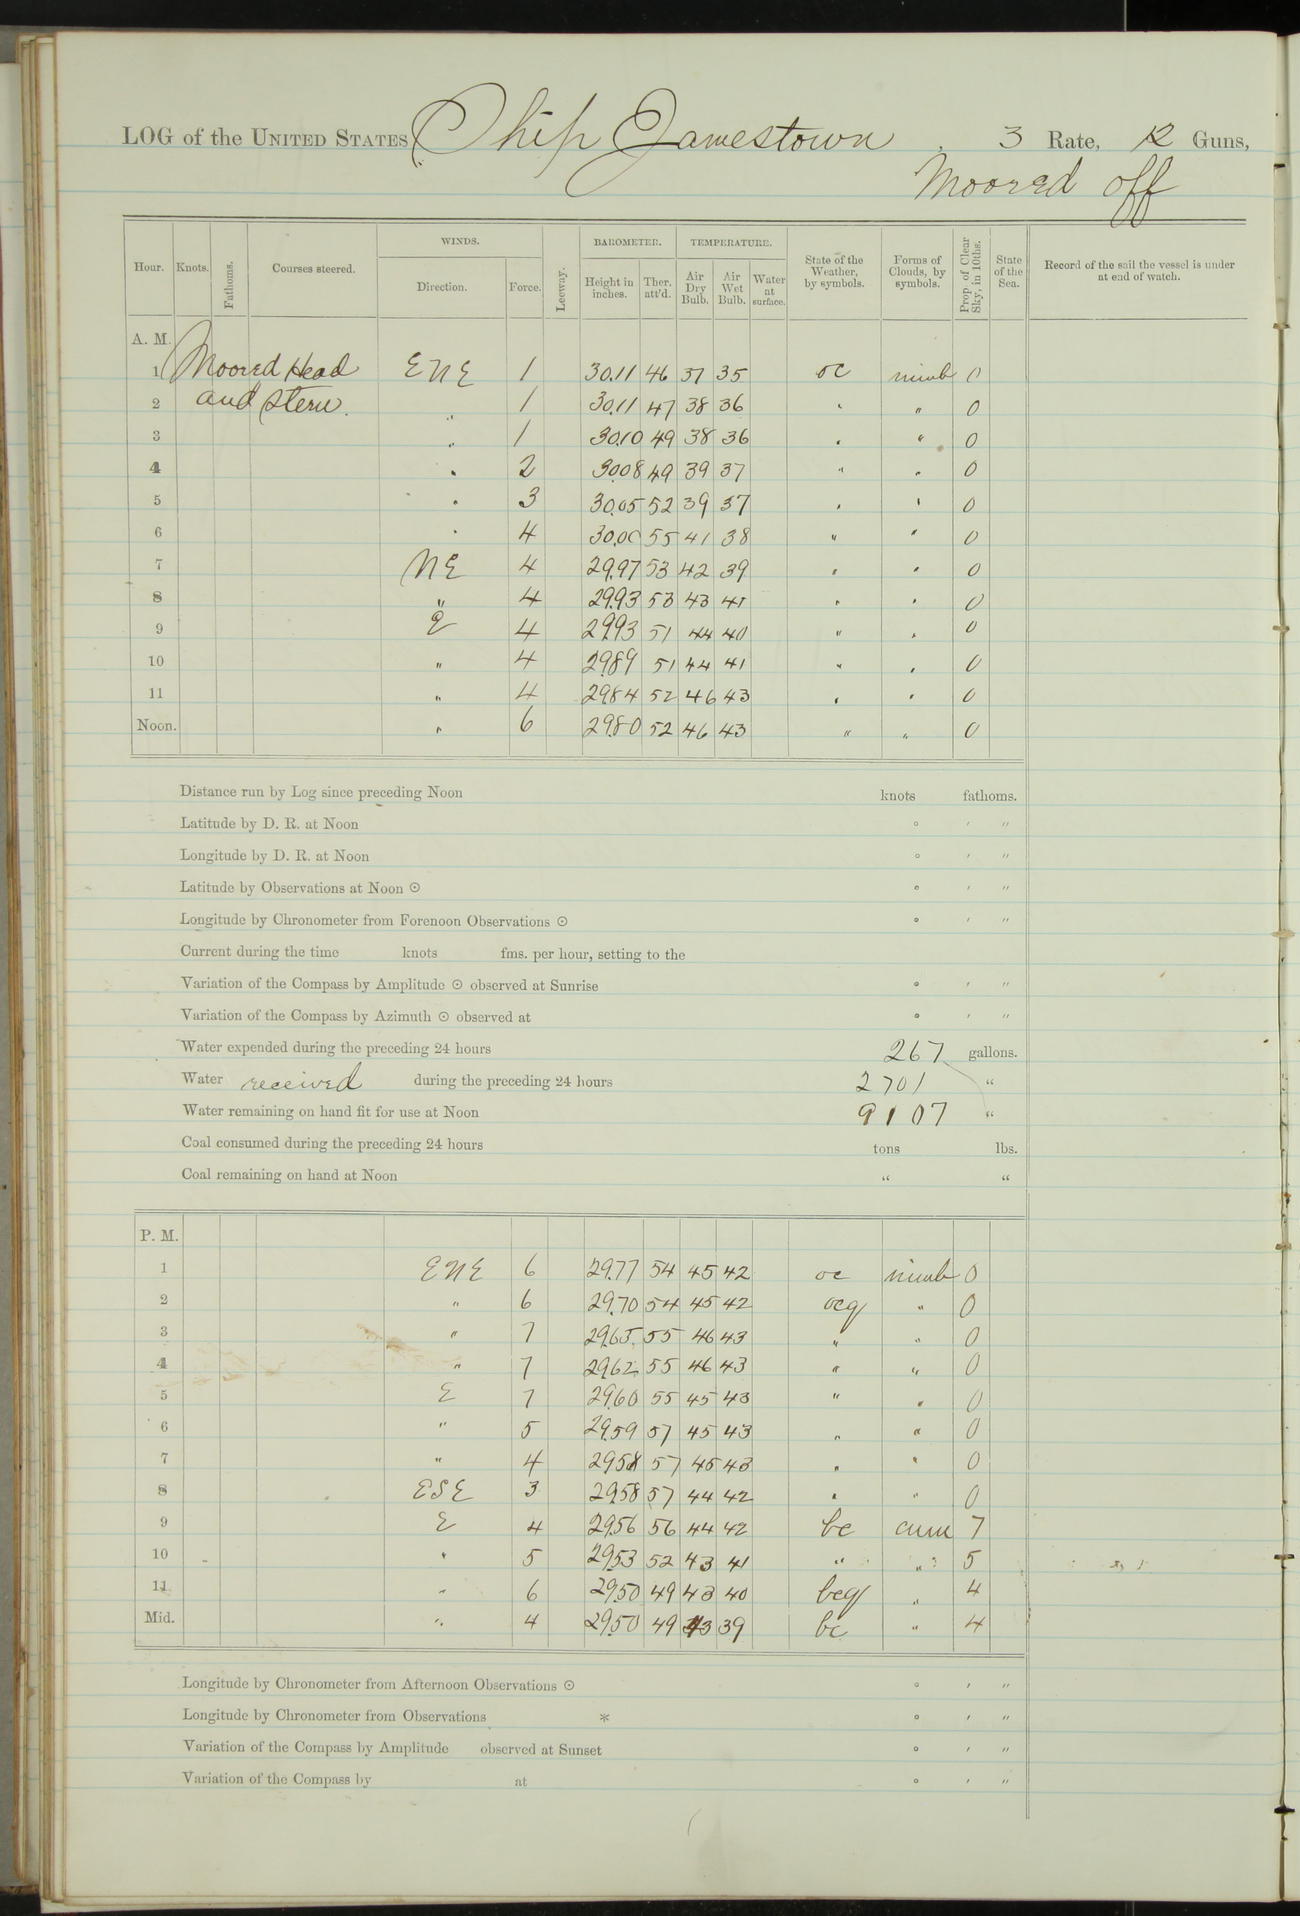 LOG of the UNITED STATES Ship Jamestown , 3 Rate, 12 Guns,
Moored off
Hour. Knots. Fathoms. Courses steered. WINDS. Direction. Force. Leeway. BAROMETER. Height in inches. Ther. att'd. TEMPERATURE. Air Dry Bulb. Air Wet Bulb. Water at surface. State of the Weather, by symbols. Forms of Clouds, by symbols. Prop. of Clear Sky, in 10ths. State of the Sea. Record of the sail the vessel is under at end of watch.
A. M.
1 Moored Head ENE 1 30.11 46 37 35 oc nimb 0
2 and Stern. " 1 30.11 47 38 36 " " 0
3 " 1 30.10 49 38 36 " " 0
4 " 2 30.08 49 39 37 " " 0
5 " 3 30.05 52 39 37 " " 0
6 " 4 30.00 55 41 38 " " 0
7 NE 4 29.97 53 42 39 " " 0
8 " 4 29.93 53 43 41 " " 0
9 E 4 29.93 51 44 40 " " 0
10 " 4 29.89 51 44 41 " " 0
11 " 4 29.84 52 46 43 " " 0
Noon. " 6 29.80 52 46 43 " " 0
Distance run by Log since preceding Noon knots fathoms.
Latitude by D. R. at Noon ° ′ ″
Longitude by D. R. at Noon ° ′ ″
Latitude by Observations at Noon ☉ ° ′ ″
Longitude by Chronometer from Forenoon Observations ☉ ° ′ ″
Current during the time knots fms. per hour, setting to the
Variation of the Compass by Amplitude ☉ observed at Sunrise ° ′ ″
Variation of the Compass by Azimuth ☉ observed at ° ′ ″
Water expended during the preceding 24 hours 267 gallons.
Water received during the preceding 24 hours 2701 "
Water remaining on hand fit for use at Noon 9107 "
Coal consumed during the preceding 24 hours tons lbs.
Coal remaining on hand at Noon " "
P. M.
1 ENE 6 29.77 54 45 42 oc nimb 0
2 " 6 29.70 54 45 42 ocq " 0
3 " 7 29.65 55 46 43 " " 0
4 " 7 29.62 55 46 43 " " 0
5 E 7 29.60 55 45 43 " " 0
6 " 5 29.59 57 45 43 " " 0
7 " 4 29.58 57 45 43 " " 0
8 ESE 3 29.58 57 44 42 " " 0
9 E 4 29.56 56 44 42 bc cum 7
10 " 5 29.53 52 43 41 " " 5
11 " 6 29.50 49 43 40 bcq " 4
Mid. " 4 29.50 49 43 39 bc " 4
Longitude by Chronometer from Afternoon Observations ☉ ° ′ ″
Longitude by Chronometer from Observations * ° ′ ″
Variation of the Compass by Amplitude observed at Sunset ° ′ ″
Variation of the Compass by at ° ′ ″